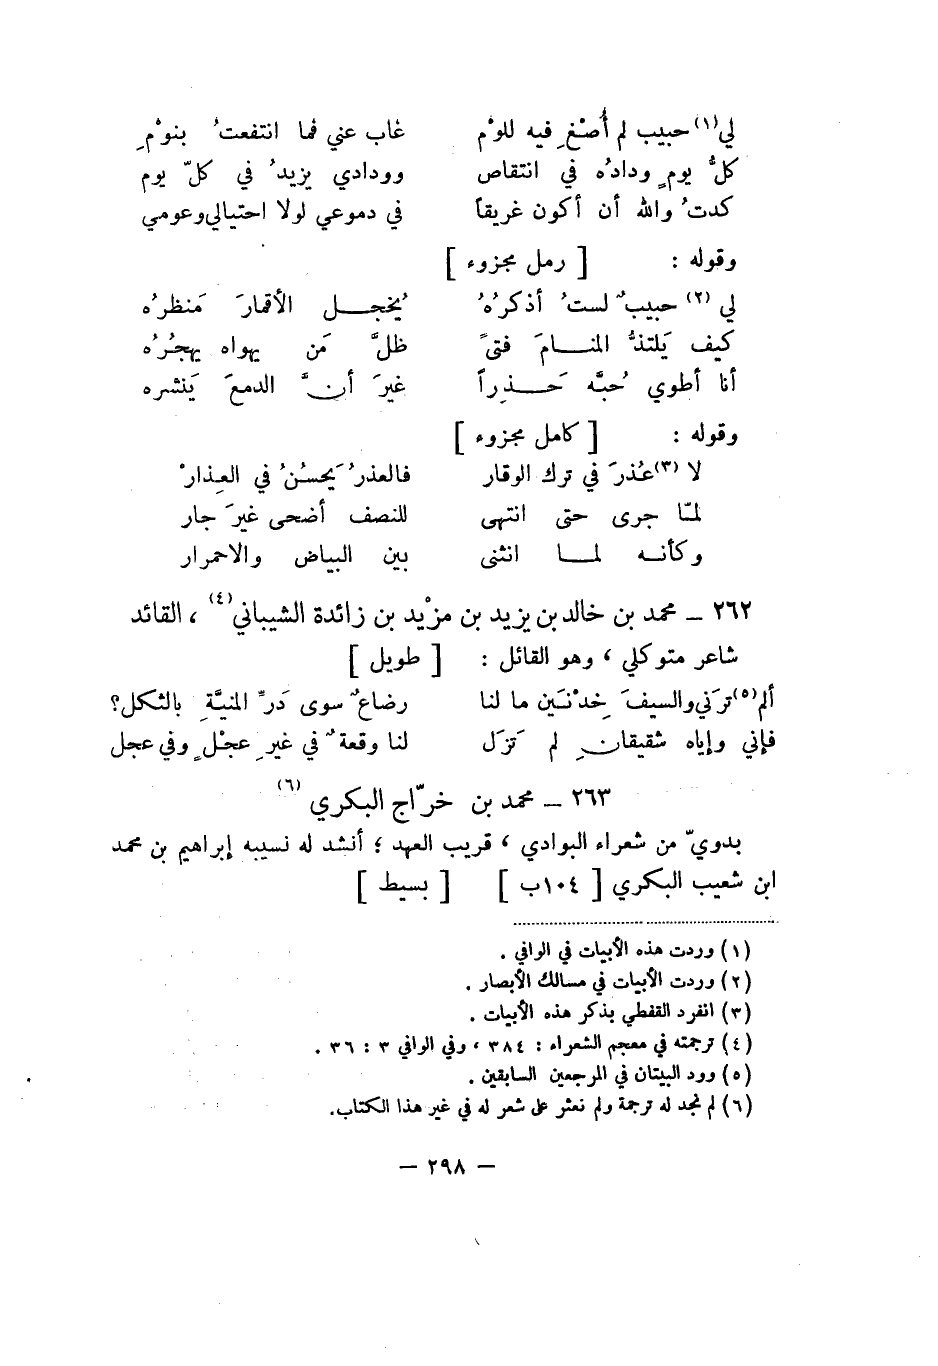 لي(١) حبيب لم أُصْغِ فيه للوْم غاب عني فما انتفعتُ بنوْمِ
كلُّ يومٍ ودادُه في انتقاص وودادي يزيدُ في كلّ يوم
كدتُ والله أن أكون غريقاً في دموعي لولا احتيالي وعومي
وقوله : [ رمل مجزوء ]
لي (٢) حبيبٌ لستُ أذكرُهُ يُخجــل الأقمارَ مَنظرُه
كيف يَلتذُّ المنــامَ فتىً ظلَّ مَن يهواه يهجُرُه
أنا أطوي حُبَّه حَــذِراً غيرَ أنَّ الدمعَ يَنشره
وقوله : [ كامل مجزوء ]
لا (٣) عُذرَ في ترك الوقار فالعذرُ يَحسُنُ في العِذارْ
لمّا جرى حتى انتهى للنصف أضحى غيرَ جار
وكأنه لمــا انثنى بين البياض والاحمرار
٢٦٢ – محمد بن خالد بن يزيد بن مزْيد بن زائدة الشيباني(٤) ، القائد
شاعر متوكلي ، وهو القائل : [ طويل ]
ألم(٥) ترَني والسيفَ خِدْنَين ما لنا رضاعٌ سوى دَرِّ المنيَّةِ بالثكل؟
فإني وإياه شقيقانِ لم تَزَل لنا وقعةٌ في غيرِ عجْلٍ وفي عجل
٢٦٣ – محمد بن خرّاج البكري (٦)
بدويّ من شعراء البوادي ، قريب العهد ؛ أنشد له نسيبه إبراهيم بن محمد
ابن شعيب البكري [ ١٠٤ب ] [ بسيط ]
(١) وردت هذه الأبيات في الوافي .
(٢) وردت الأبيات في مسالك الأبصار .
(٣) انفرد القفطي بذكر هذه الأبيات .
(٤) ترجمته في معجم الشعراء : ٣٨٤ ، وفي الوافي ٣ : ٣٦ .
(٥) ورد البيتان في المرجعين السابقين .
(٦) لم نجد له ترجمة ولم نعثر على شعر له في غير هذا الكتاب.
– ٢٩٨ –